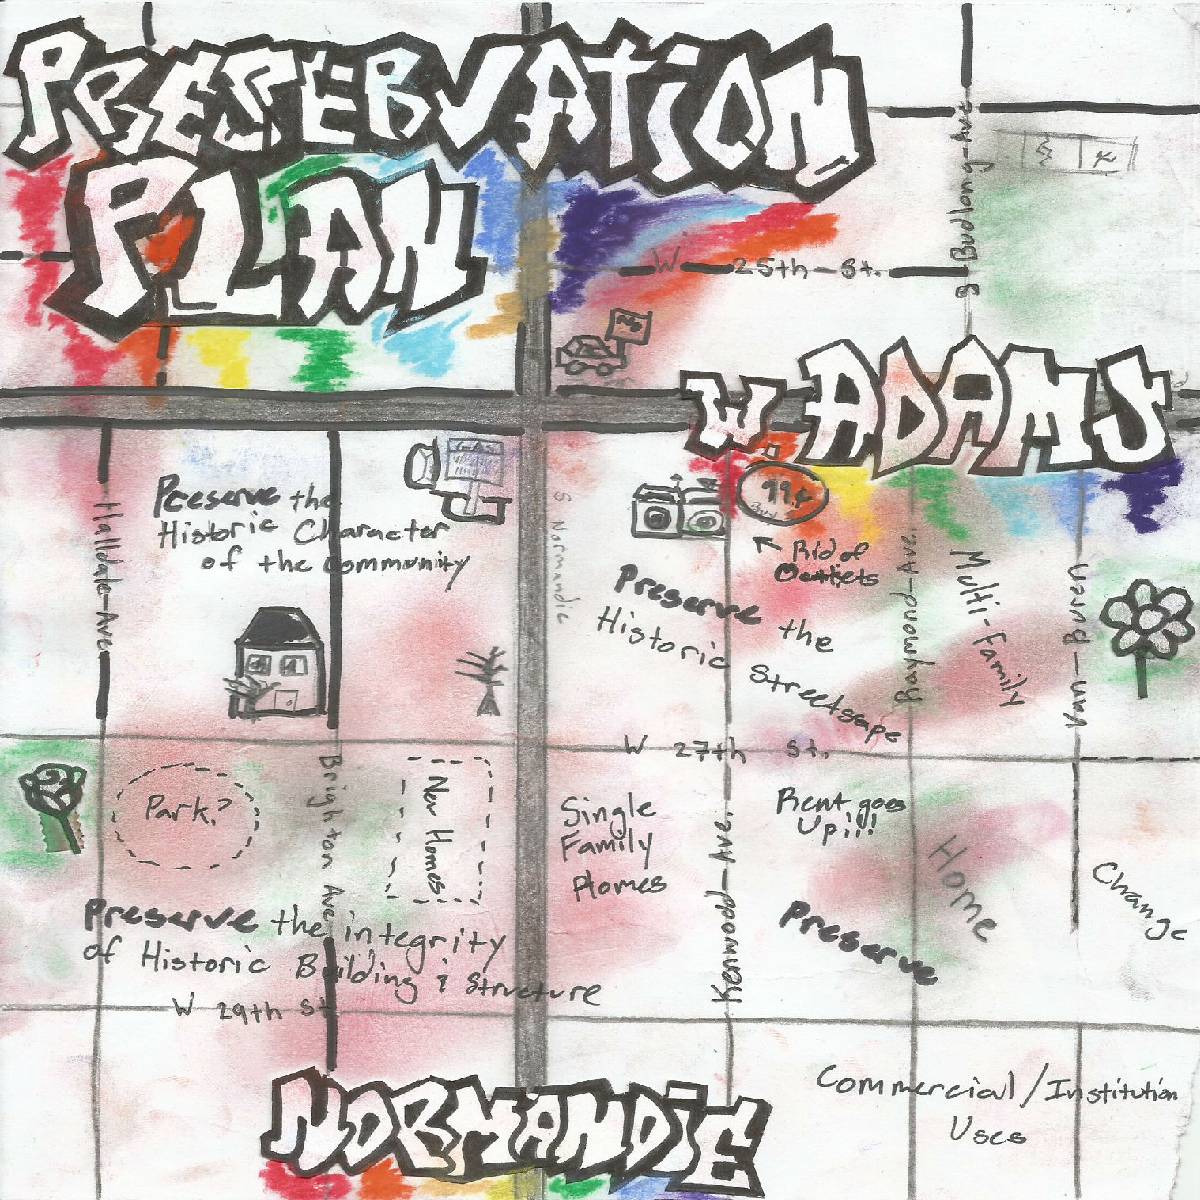 PRESERVATION
PLAN
S Budlong-Ave
W 25th-St.
W ADAMS
Halldale-Ave
Preserve the
Historic Character
of the Community
S Normandie
99¢
Rid of
Outlets
Preserve the
Historic Streetsape
Raymond-Ave.
Multi-Family
Van-Buren
W 27th St.
Park?
Brighton Ave.
New Homes
Single
Family
Homes
Rent goes
Up!!!
Kenwodd-Ave.
Home
Change
Preserve
Preserve the integrity
of Historic Building & Structure
W 29th St
Commercial/Institution
Uses
NORMANDIE